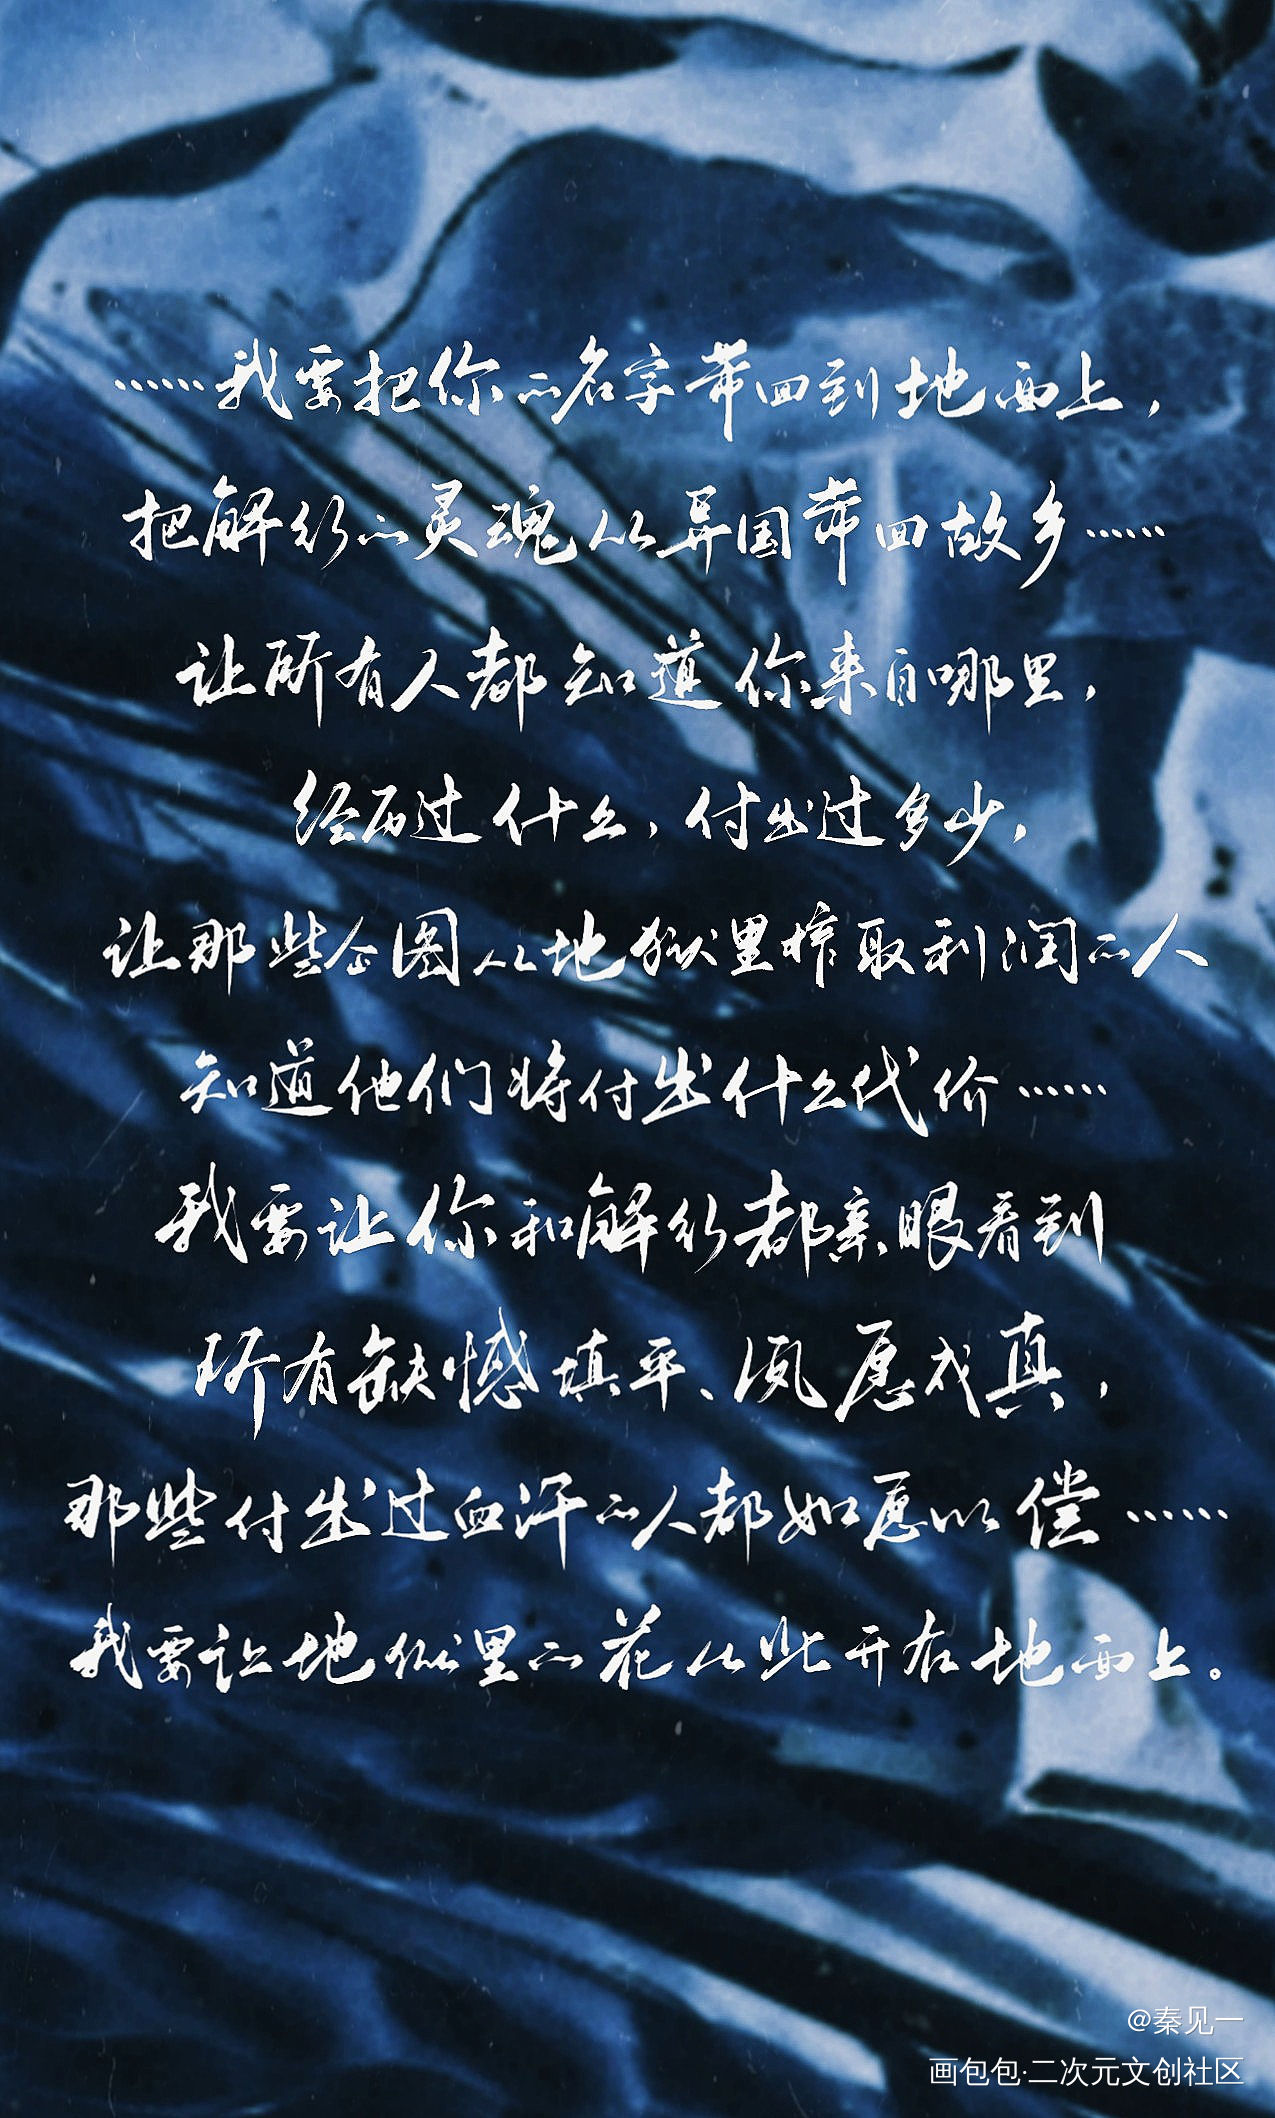 ……我要把你的名字带回到地面上，
把解行的灵魂从异国带回故乡……
让所有人都知道你来自哪里，
经历过什么，付出过多少，
让那些企图从地狱里榨取利润的人
知道他们将付出什么代价……
我要让你和解行都亲眼看到
所有缺憾填平、夙愿成真，
那些付出过血汗的人都如愿以偿……
我要让地狱里的花从此开在地面上。
@秦见一
画包包·二次元文创社区